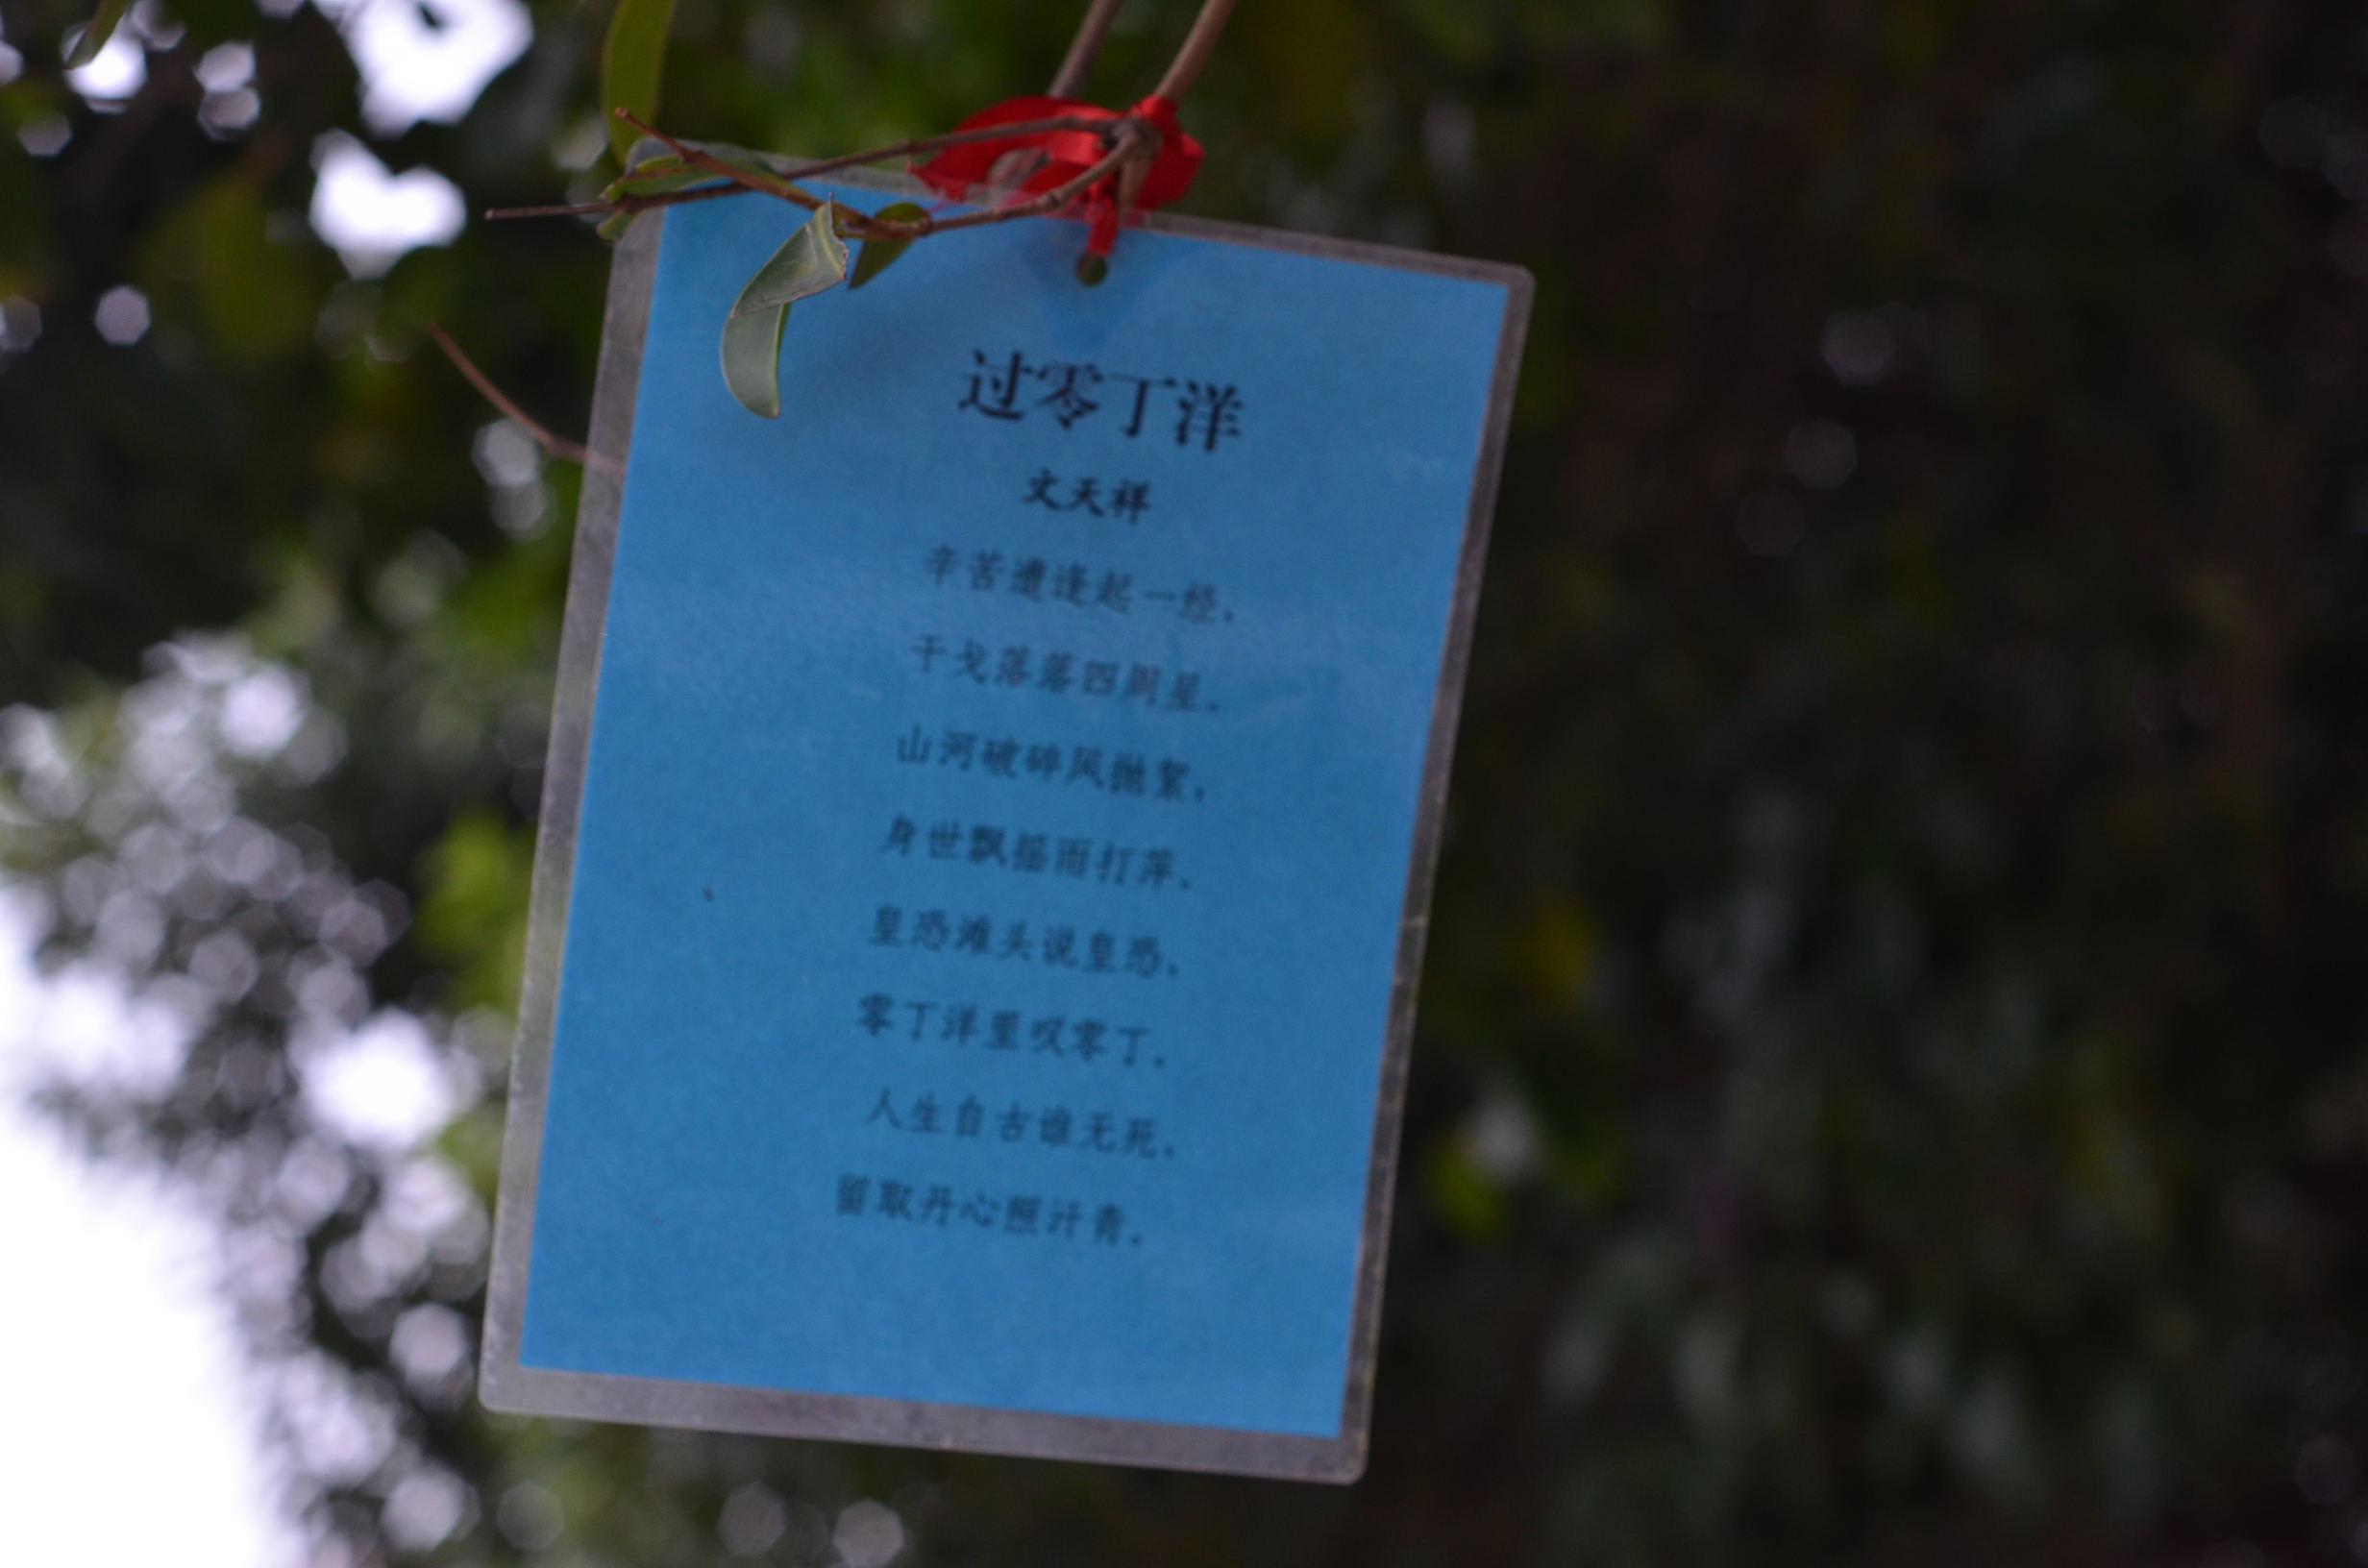 过零丁洋
文天祥
辛苦遭逢起一经，
干戈落落四周星。
山河破碎风抛絮，
身世飘摇雨打萍。
皇恐滩头说皇恐，
零丁洋里叹零丁。
人生自古谁无死，
留取丹心照汗青。